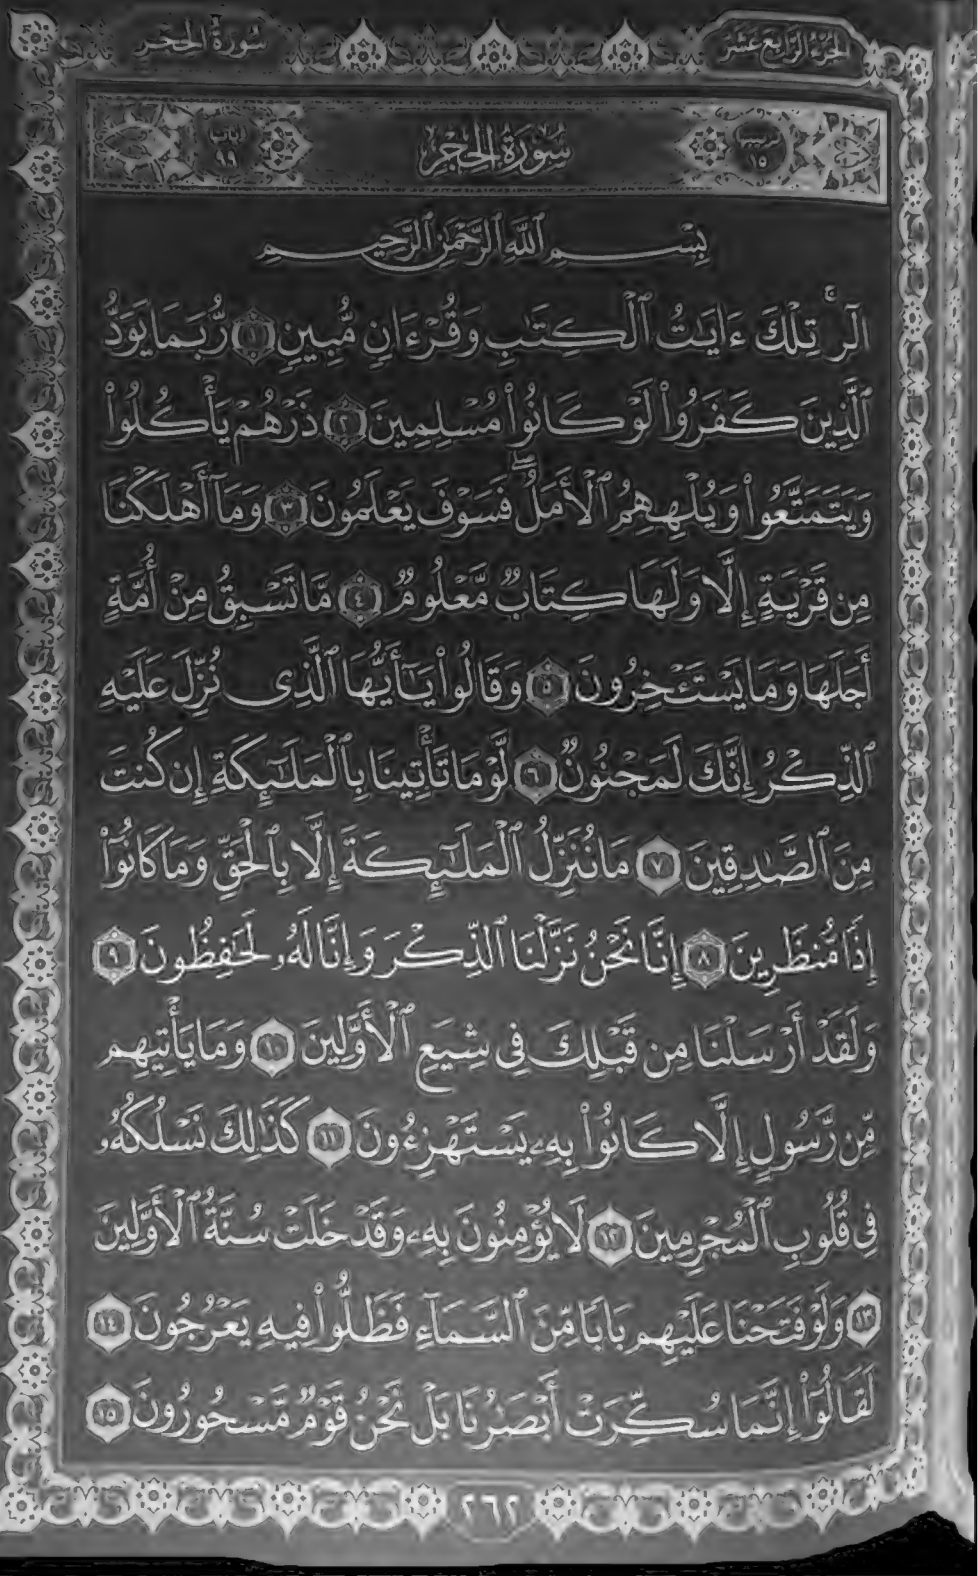 سُورَةُ الحِجْرِ
الجُزْءُ الرَّابِعَ عَشَرَ
سُورَةُ الحِجْرِ
ترتيبها ١٥
آياتها ٩٩
بِسْمِ ٱللَّهِ ٱلرَّحْمَٰنِ ٱلرَّحِيمِ
الٓرۚ تِلْكَ ءَايَٰتُ ٱلْكِتَٰبِ وَقُرْءَانٍ مُّبِينٍ ١ رُّبَمَا يَوَدُّ
ٱلَّذِينَ كَفَرُوا۟ لَوْ كَانُوا۟ مُسْلِمِينَ ٢ ذَرْهُمْ يَأْكُلُوا۟
وَيَتَمَتَّعُوا۟ وَيُلْهِهِمُ ٱلْأَمَلُۖ فَسَوْفَ يَعْلَمُونَ ٣ وَمَآ أَهْلَكْنَا
مِن قَرْيَةٍ إِلَّا وَلَهَا كِتَابٌ مَّعْلُومٌ ٤ مَّا تَسْبِقُ مِنْ أُمَّةٍ
أَجَلَهَا وَمَا يَسْتَـْٔخِرُونَ ٥ وَقَالُوا۟ يَٰٓأَيُّهَا ٱلَّذِى نُزِّلَ عَلَيْهِ
ٱلذِّكْرُ إِنَّكَ لَمَجْنُونٌ ٦ لَّوْ مَا تَأْتِينَا بِٱلْمَلَٰٓئِكَةِ إِن كُنتَ
مِنَ ٱلصَّٰدِقِينَ ٧ مَا نُنَزِّلُ ٱلْمَلَٰٓئِكَةَ إِلَّا بِٱلْحَقِّ وَمَا كَانُوٓا۟
إِذًا مُّنظَرِينَ ٨ إِنَّا نَحْنُ نَزَّلْنَا ٱلذِّكْرَ وَإِنَّا لَهُۥ لَحَٰفِظُونَ ٩
وَلَقَدْ أَرْسَلْنَا مِن قَبْلِكَ فِى شِيَعِ ٱلْأَوَّلِينَ ١٠ وَمَا يَأْتِيهِم
مِّن رَّسُولٍ إِلَّا كَانُوا۟ بِهِۦ يَسْتَهْزِءُونَ ١١ كَذَٰلِكَ نَسْلُكُهُۥ
فِى قُلُوبِ ٱلْمُجْرِمِينَ ١٢ لَا يُؤْمِنُونَ بِهِۦ وَقَدْ خَلَتْ سُنَّةُ ٱلْأَوَّلِينَ
١٣ وَلَوْ فَتَحْنَا عَلَيْهِم بَابًا مِّنَ ٱلسَّمَآءِ فَظَلُّوا۟ فِيهِ يَعْرُجُونَ ١٤
لَقَالُوٓا۟ إِنَّمَا سُكِّرَتْ أَبْصَٰرُنَا بَلْ نَحْنُ قَوْمٌ مَّسْحُورُونَ ١٥
٢٦٢